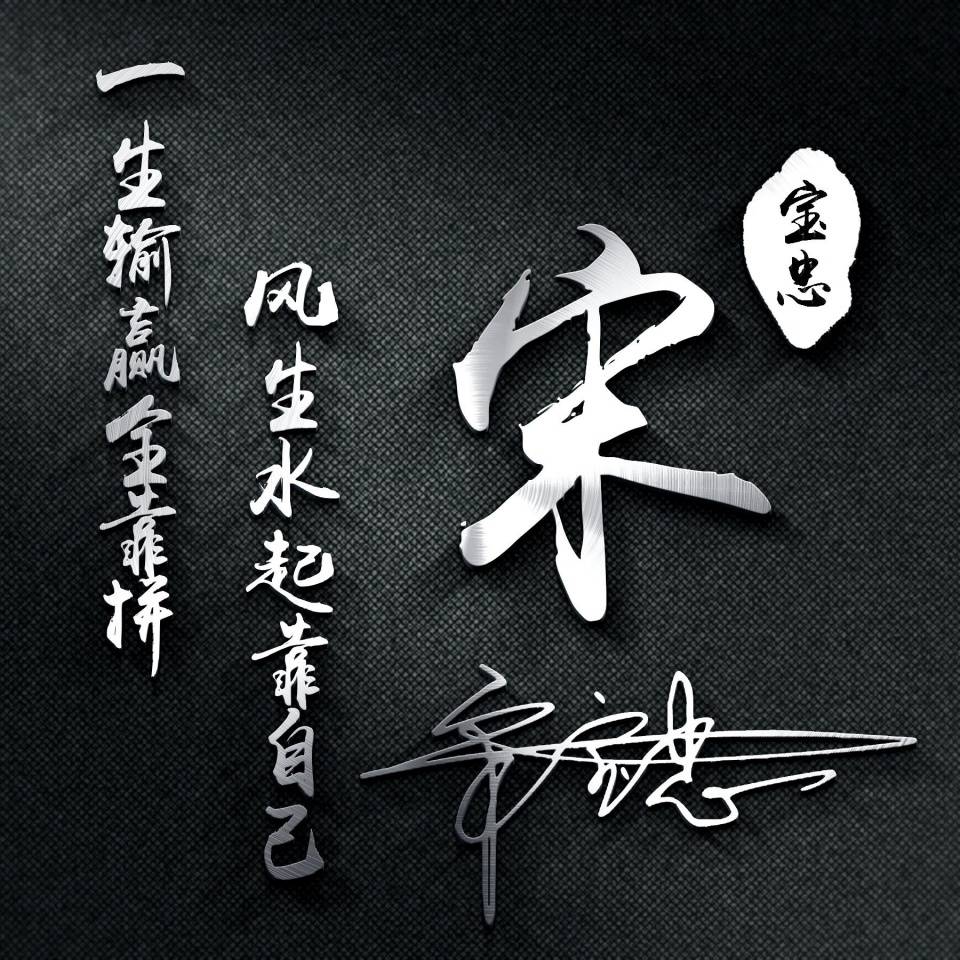 宝忠
宋
宋宝忠
风生水起靠自己
一生输赢全靠拼